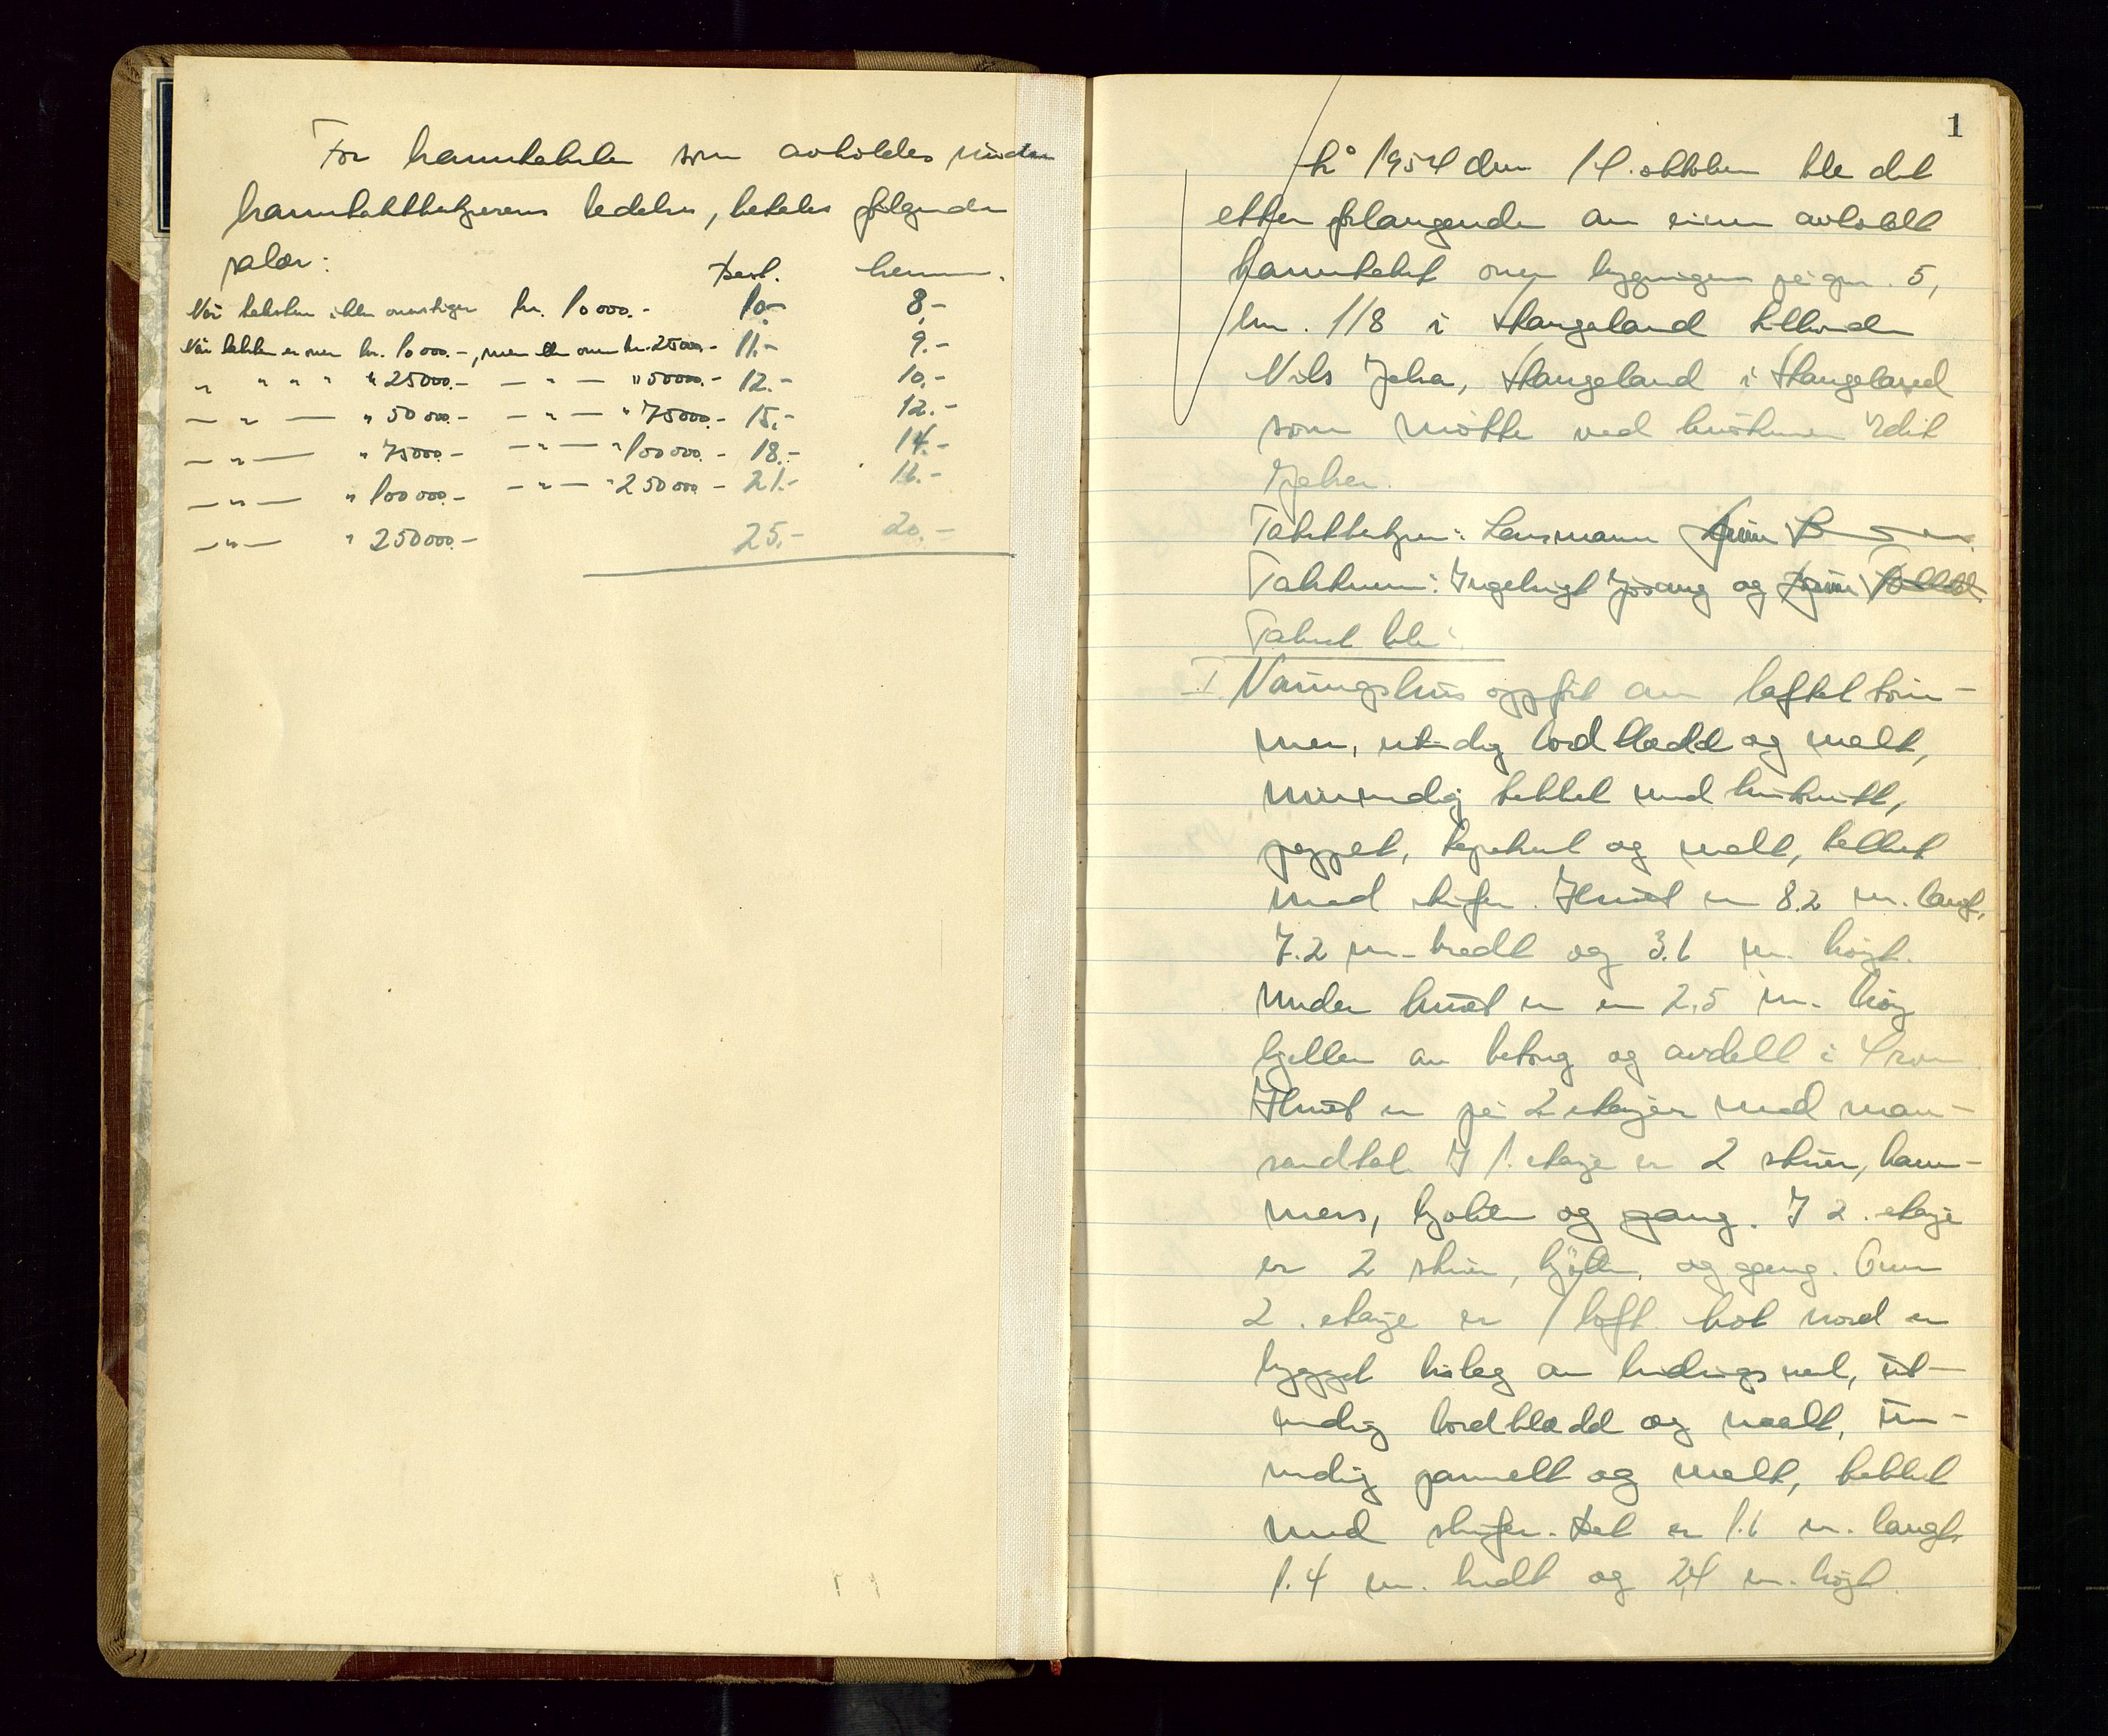 For branntakster som avholdes under
branntakstbestyrerens ledelse, betales følgende
salær:
Best. menn.
Når taksten ikke overstiger kr. 10000.- 10.- 8,-
Når taksten er over kr. 10000.-, men ikke over kr. 25000.- 11.- 9.-
" " " " " 25000.- — " — " 50000.- 12.- 10.-
— " — " 50000.- — " — " 75000.- 15.- 12.-
— " — " 75000.- — " — " 100000.- 18.- 14.-
— " — " 100000.- — " — " 250000.- 21.- 16.-
— " — " 250000.- 25.- 20.-
1
År 1954 den 14. oktober ble det
etter forlangende av eieren avholdt
branntakst over bygningen på gnr. 5,
bnr. 118 i Stangeland tilhørende
Nils Jelsa, Stangeland i Stangeland
som møtte ved hustruen Edit
Jelsa.
Takstbestyrer: Lensmann
Takstmenn: Ingebrigt Jøsang og
Takset ble:
I Våningshus oppført av laftet tøm-
mer, utvendig bordkledd og malt,
innvendig trekket med huntonitt,
pappet, tapetsert og malt, tekket
med skifer. Huset er 8.2 m. langt,
7.2 m. bredt og 3.6 m. høyt.
Under huset er en 2,5 m. høy
kjeller av betong og avdelt i 4 rom
Huset er på 2 etasjer med man-
sardtak. I 1. etasje er 2 stuer, kam-
mers, kjøkken og gang. I 2. etasje
er 2 stuer, kjøkken, og gang. Over
2. etasje er 1 loft. Mot nord er
bygget bislag av bindingsverk, ut-
vendig bordkledd og malt, inn-
vendig panelt og malt, tekket
med skifer. Det er 1.6 m. langt
1.4 m. bredt og 2,4 m. høyt.